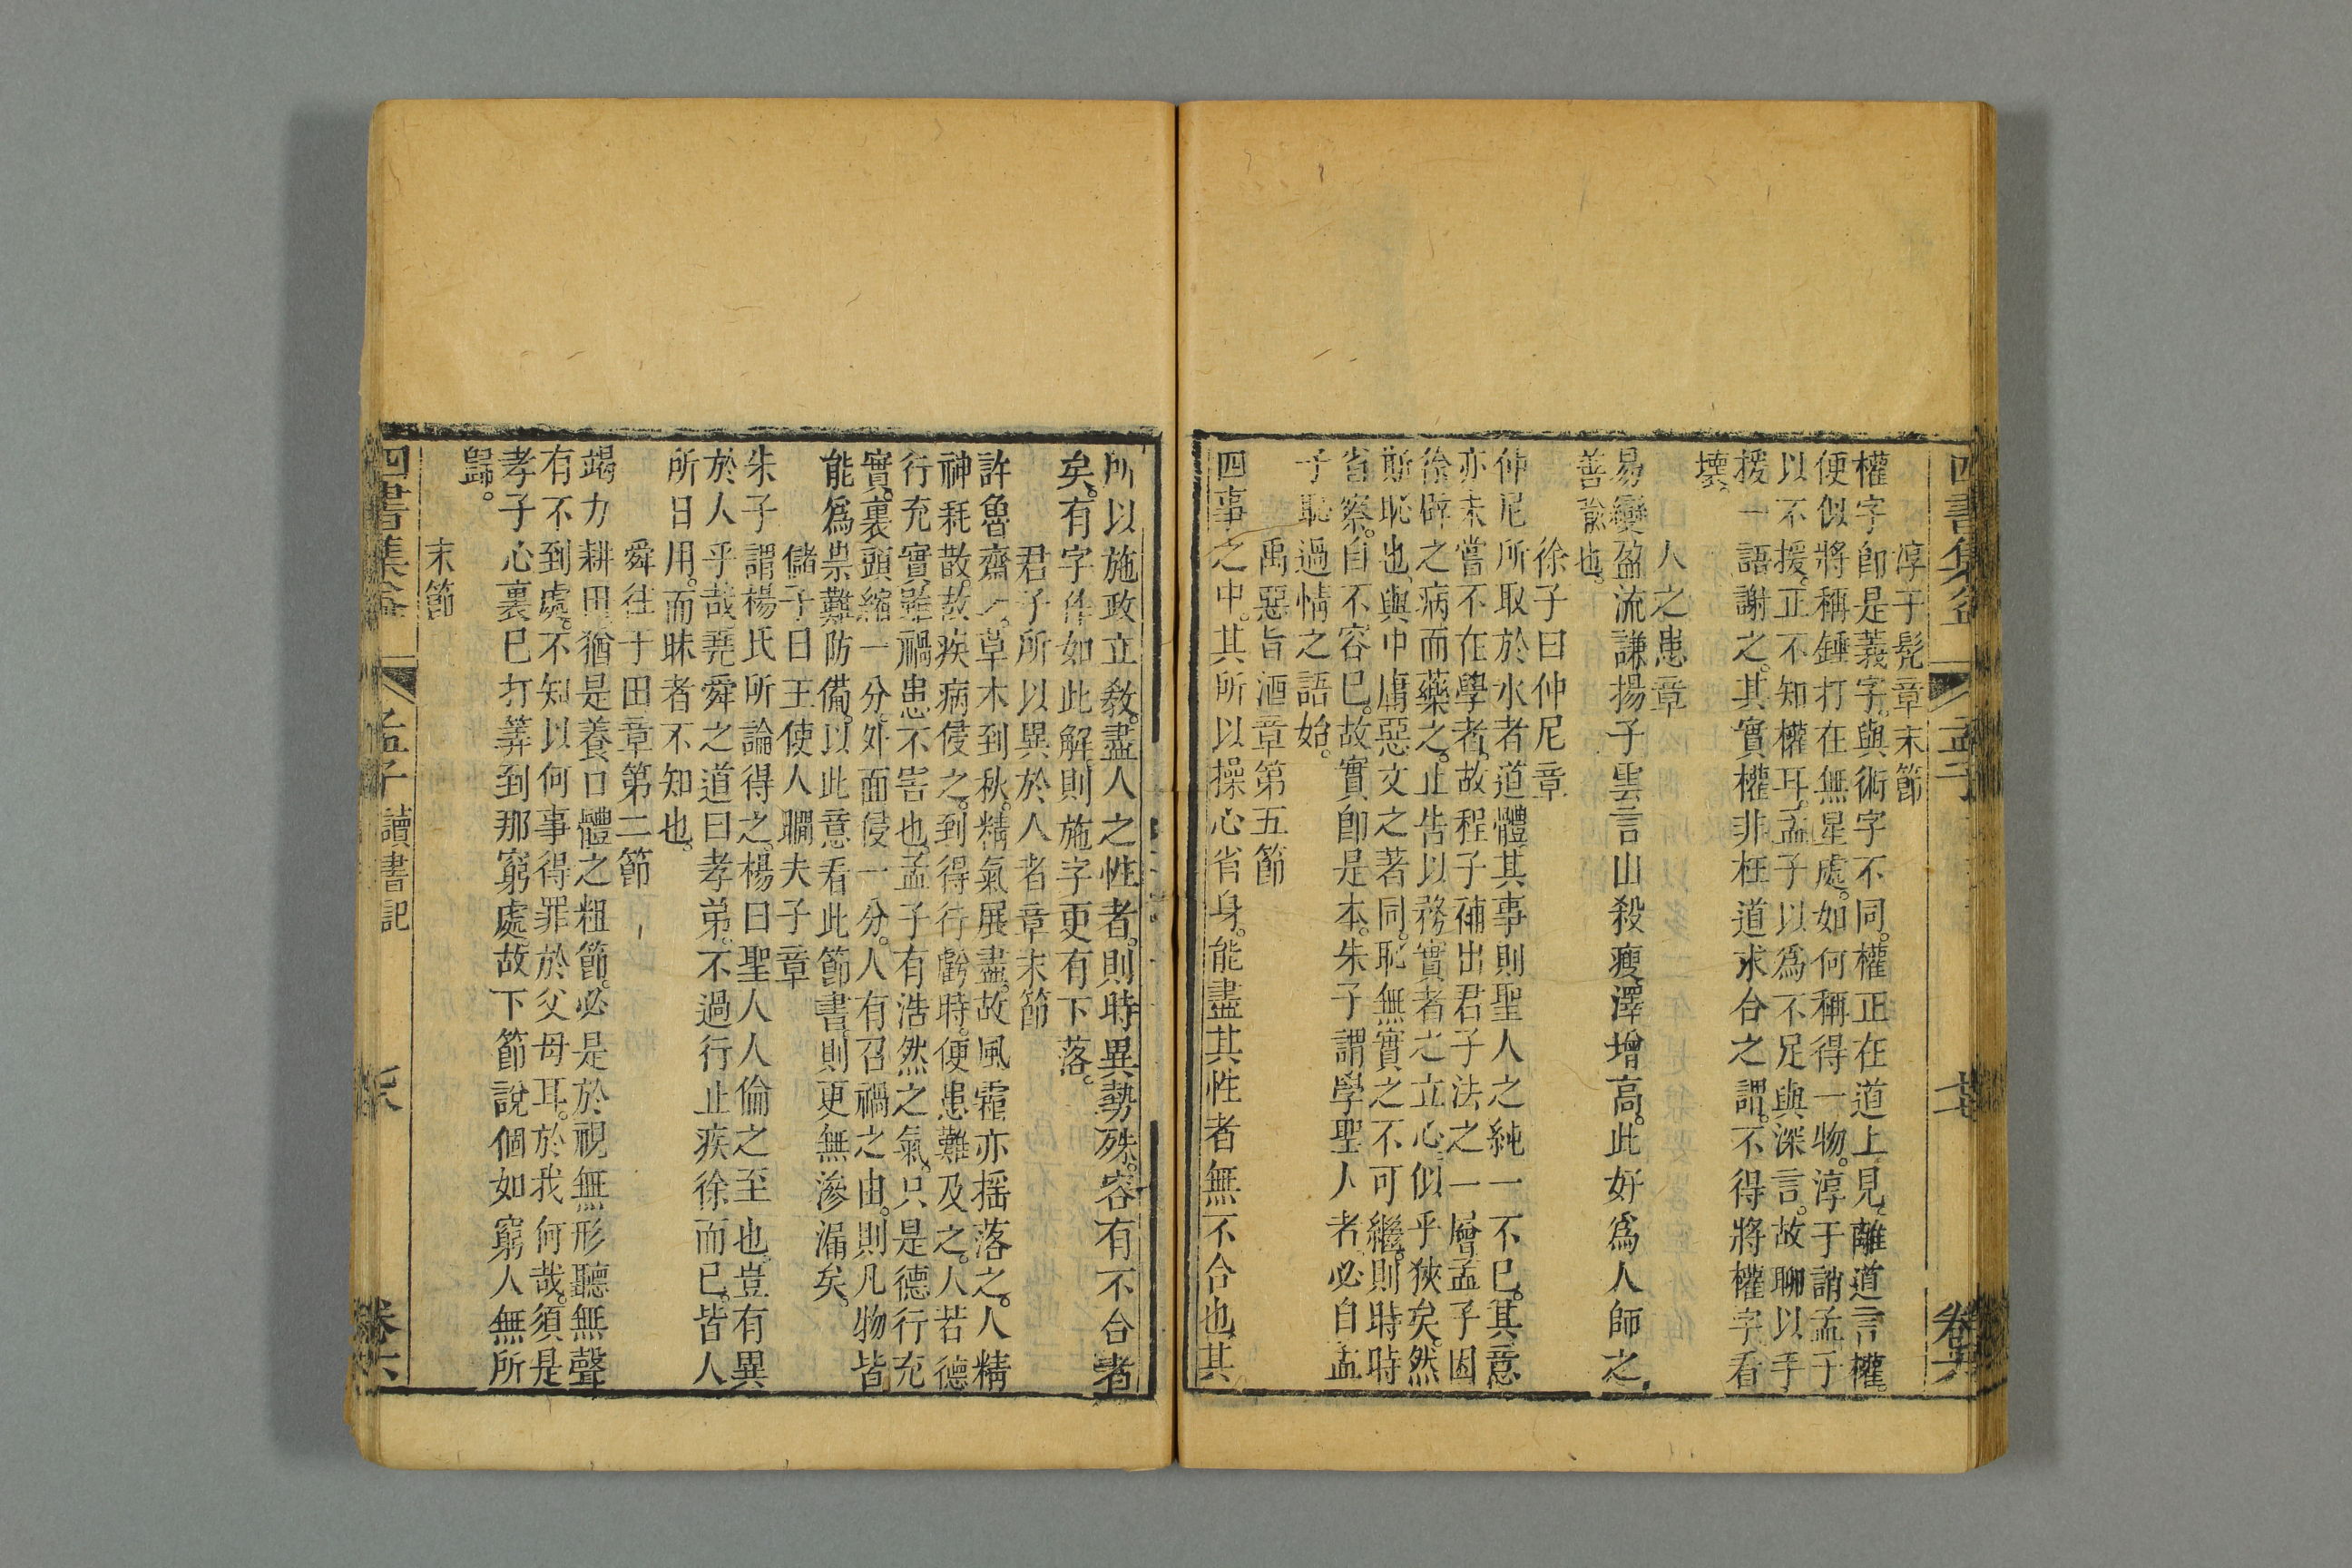 四書集益 孟子 卷六
淳于髡章末節
權字卽是義字。與術字不同。權正在道上見。離道言權。
便似將稱錘打在無星處。如何稱得一物。淳于誚孟子
以不援。正不知權耳。孟子以爲不足與深言。故聊以手
援一語謝之。其實權非枉道求合之謂。不得將權字看
壞。
人之患章
易變盈流謙揚子雲言山殺瘦澤增高。此好爲人師之
善諭也。
徐子曰仲尼章
仲尼所取於水者道體其事則聖人之純一不已。其意
亦未嘗不在學者。故程子補出君子法之一層孟子因
徐辟之病而藥之。止告以務實者之立心。似乎狹矣。然
斯恥也。與中庸惡文之著同。恥無實之不可繼。則時時
省察。自不容已。故實卽是本。朱子謂學聖人者必自孟
子恥過情之語始。
禹惡旨酒章第五節
四事之中。其所以操心省身。能盡其性者無不合也。其
所以施政立敎。盡人之性者。則時異勢殊。容有不合者
矣。有字作如此解。則施字更有下落。
君子所以異於人者章末節
許魯齋人。草木到秋。精氣展盡。故風霜亦搖落之。人精
神耗散。故疾病侵之。到得行虧時。便患難及之。人若德
行充實。雖禍患不害也。孟子有浩然之氣。只是德行充
實。裏頭縮一分。外面侵一分。人有召禍之由。則凡物皆
能爲祟難防備。以此意看此節書。則更無滲漏矣。
儲子曰王使人瞯夫子章
朱子謂楊氏所論得之。楊曰聖人人倫之至也。豈有異
於人乎哉。堯舜之道曰孝弟。不過行止疾徐而已。皆人
所日用。而昧者不知也。
舜往于田章第二節
竭力耕田。猶是養口體之粗節。必是於視無形聽無聲
有不到處。不知以何事得罪於父母耳。於我何哉。須是
孝子心裏已打筭到那窮處。故下節說個如窮人無所
歸。
末節
四書集益 孟子 讀書記 卷六